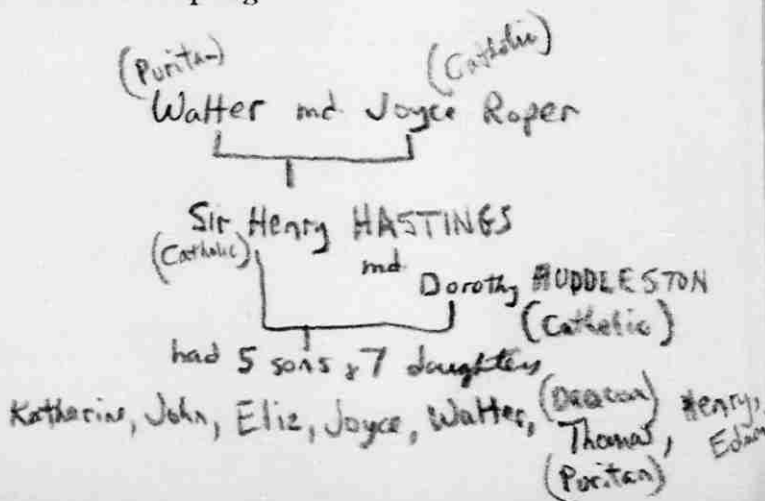 (Puritan) (Catholic)
Walter md Joyce Roper
Sir Henry HASTINGS
(Catholic)
md
Dorothy HUDDLESTON
(Catholic)
had 5 sons & 7 daughters
Katharine, John, Eliz, Joyce, Walter, (Deacon) Thomas, Henry,
(Puritan)